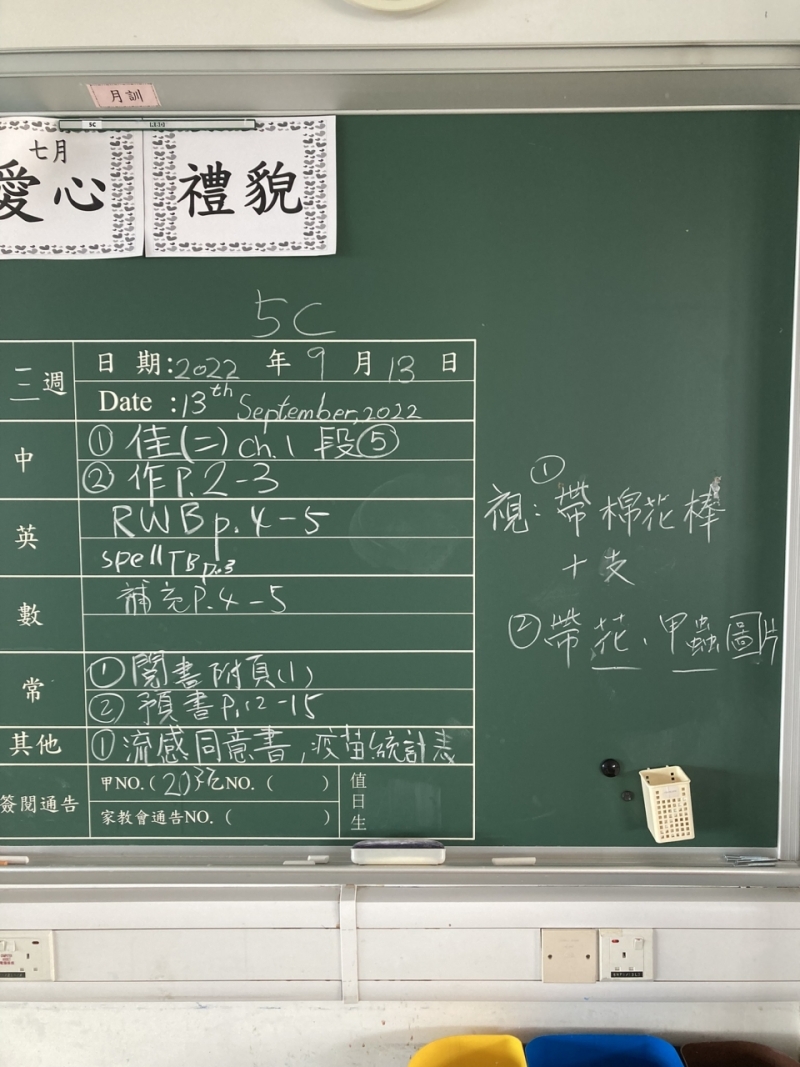 月訓
5C
七月
愛心
禮貌
5C
三週
日期:2022年9月13日
Date :13th September, 2022
中
①佳(二) ch.1 段⑤
②作P.2-3
英
RWB p.4-5
spell TB p.3
數
補充P.4-5
常
①閱書附頁(1)
②預書P.12-15
其他
①流感同意書,疫苗統計表
簽閱通告
甲NO.(2) NO.( )
家教會通告NO.( )
值日生
視:①帶棉花棒
十支
②帶花、甲蟲圖片